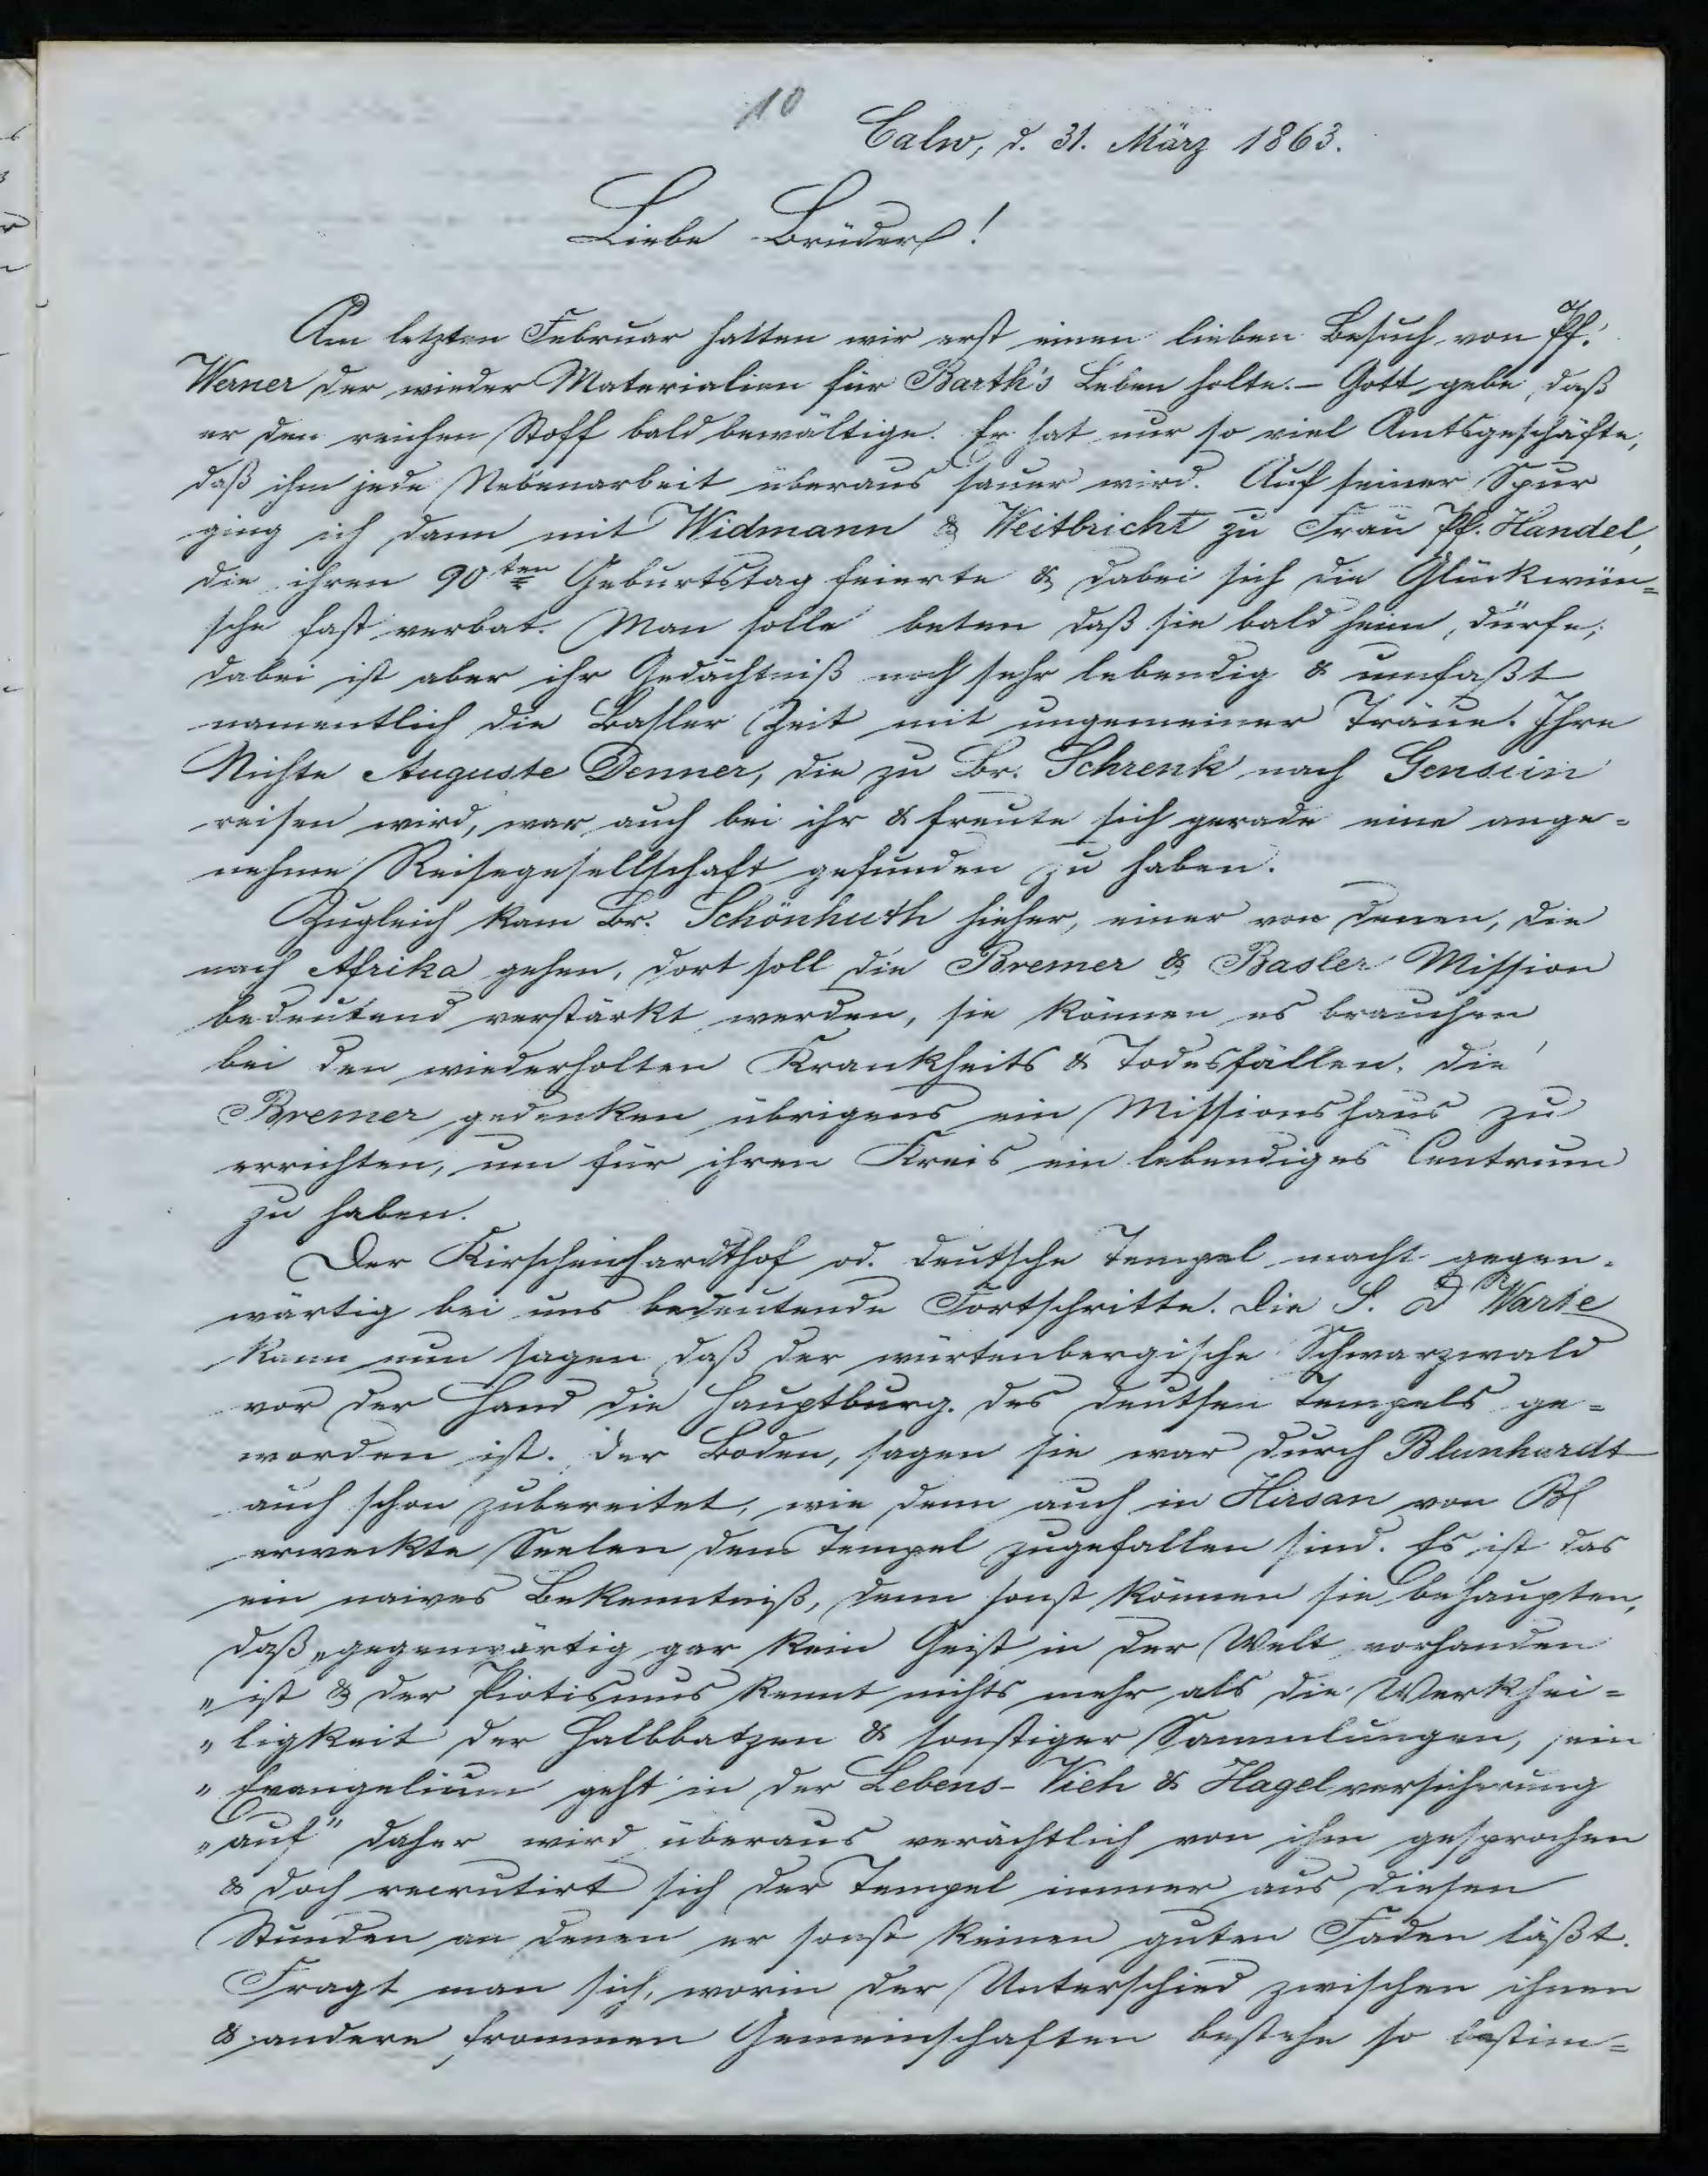 10
Calw, d. 31. März 1863.
Liebe Brüder!
Am letzten Februar hatten wir erst einen lieben Besuch von Pf.
Werner der wieder Materialien für Barth's Leben holte. – Gott gebe, daß
er den reichen Stoff bald bewältige. Er hat nur so viel Amtsgeschäfte,
daß ihm jede Nebenarbeit überaus sauer wird. Auf seiner Spur
ging ich dann mit Widmann & Weitbricht zu Frau Pf. Handel,
die ihren 90ten Geburtstag feierte & dabei sich die Glückwün=
sche fast verbat. Man solle beten daß sie bald heim, dürfe;
dabei ist aber ihr Gedächtniß noch sehr lebendig & umfaßt
namentlich die Basler Zeit mit ungemeiner Träue. Ihre
Nichte Auguste Denner, die zu Br. Schrenk nach
reisen wird, war auch bei ihr & freute sich gerade eine ange=
nehme Reisegesellschaft gefunden zu haben.
Zugleich kam Br. Schönhuth hieher, einer von denen, die
nach Afrika gehen, dort soll die Bremer & Basler Mission
bedeutend verstärkt werden, sie können es brauchen
bei den wiederholten Krankheits & Todesfällen. die
Bremer gedenken übrigens ein Missionshaus zu
errichten, um für ihren Kreis ein lebendiges Centrum
zu haben.
Der Kirschenhardthof od. deutsche Tempel macht gegen=
wärtig bei uns bedeutende Fortschritte. Die S. D Warte
kann nun sagen daß der würtenbergische Schwarzwald
vor der Hand die Hauptburg des deutsen Tempels ge=
worden ist. der Boden, sagen sie war durch Blumhardt
auch schon zubereitet, wie denn auch in Hirsan von Bl
erweckte Seelen dem Tempel zugefallen sind. Es ist das
ein naives Bekenntniß, denn sonst können sie behaupten,
daß „gegenwärtig gar kein Geist in der Welt vorhanden
„ist & der Piotismus kennt nichts mehr als die Werkhei=
„ligkeit der Halbbatzen & sonstiger Sammlungen, sein
„Evangelium geht in der Lebens- Vieh & Hagelversicherung
„auf" daher wird überaus verächtlich von ihm gesprochen
& doch recrutirt sich der Tempel immer aus diesen
Stunden an denen er sonst keinen guten Faden läßt.
Fragt man sich, worin der Unterschied zwischen ihnen
& andere frommen Gemeinschaften bestehe so bestim=